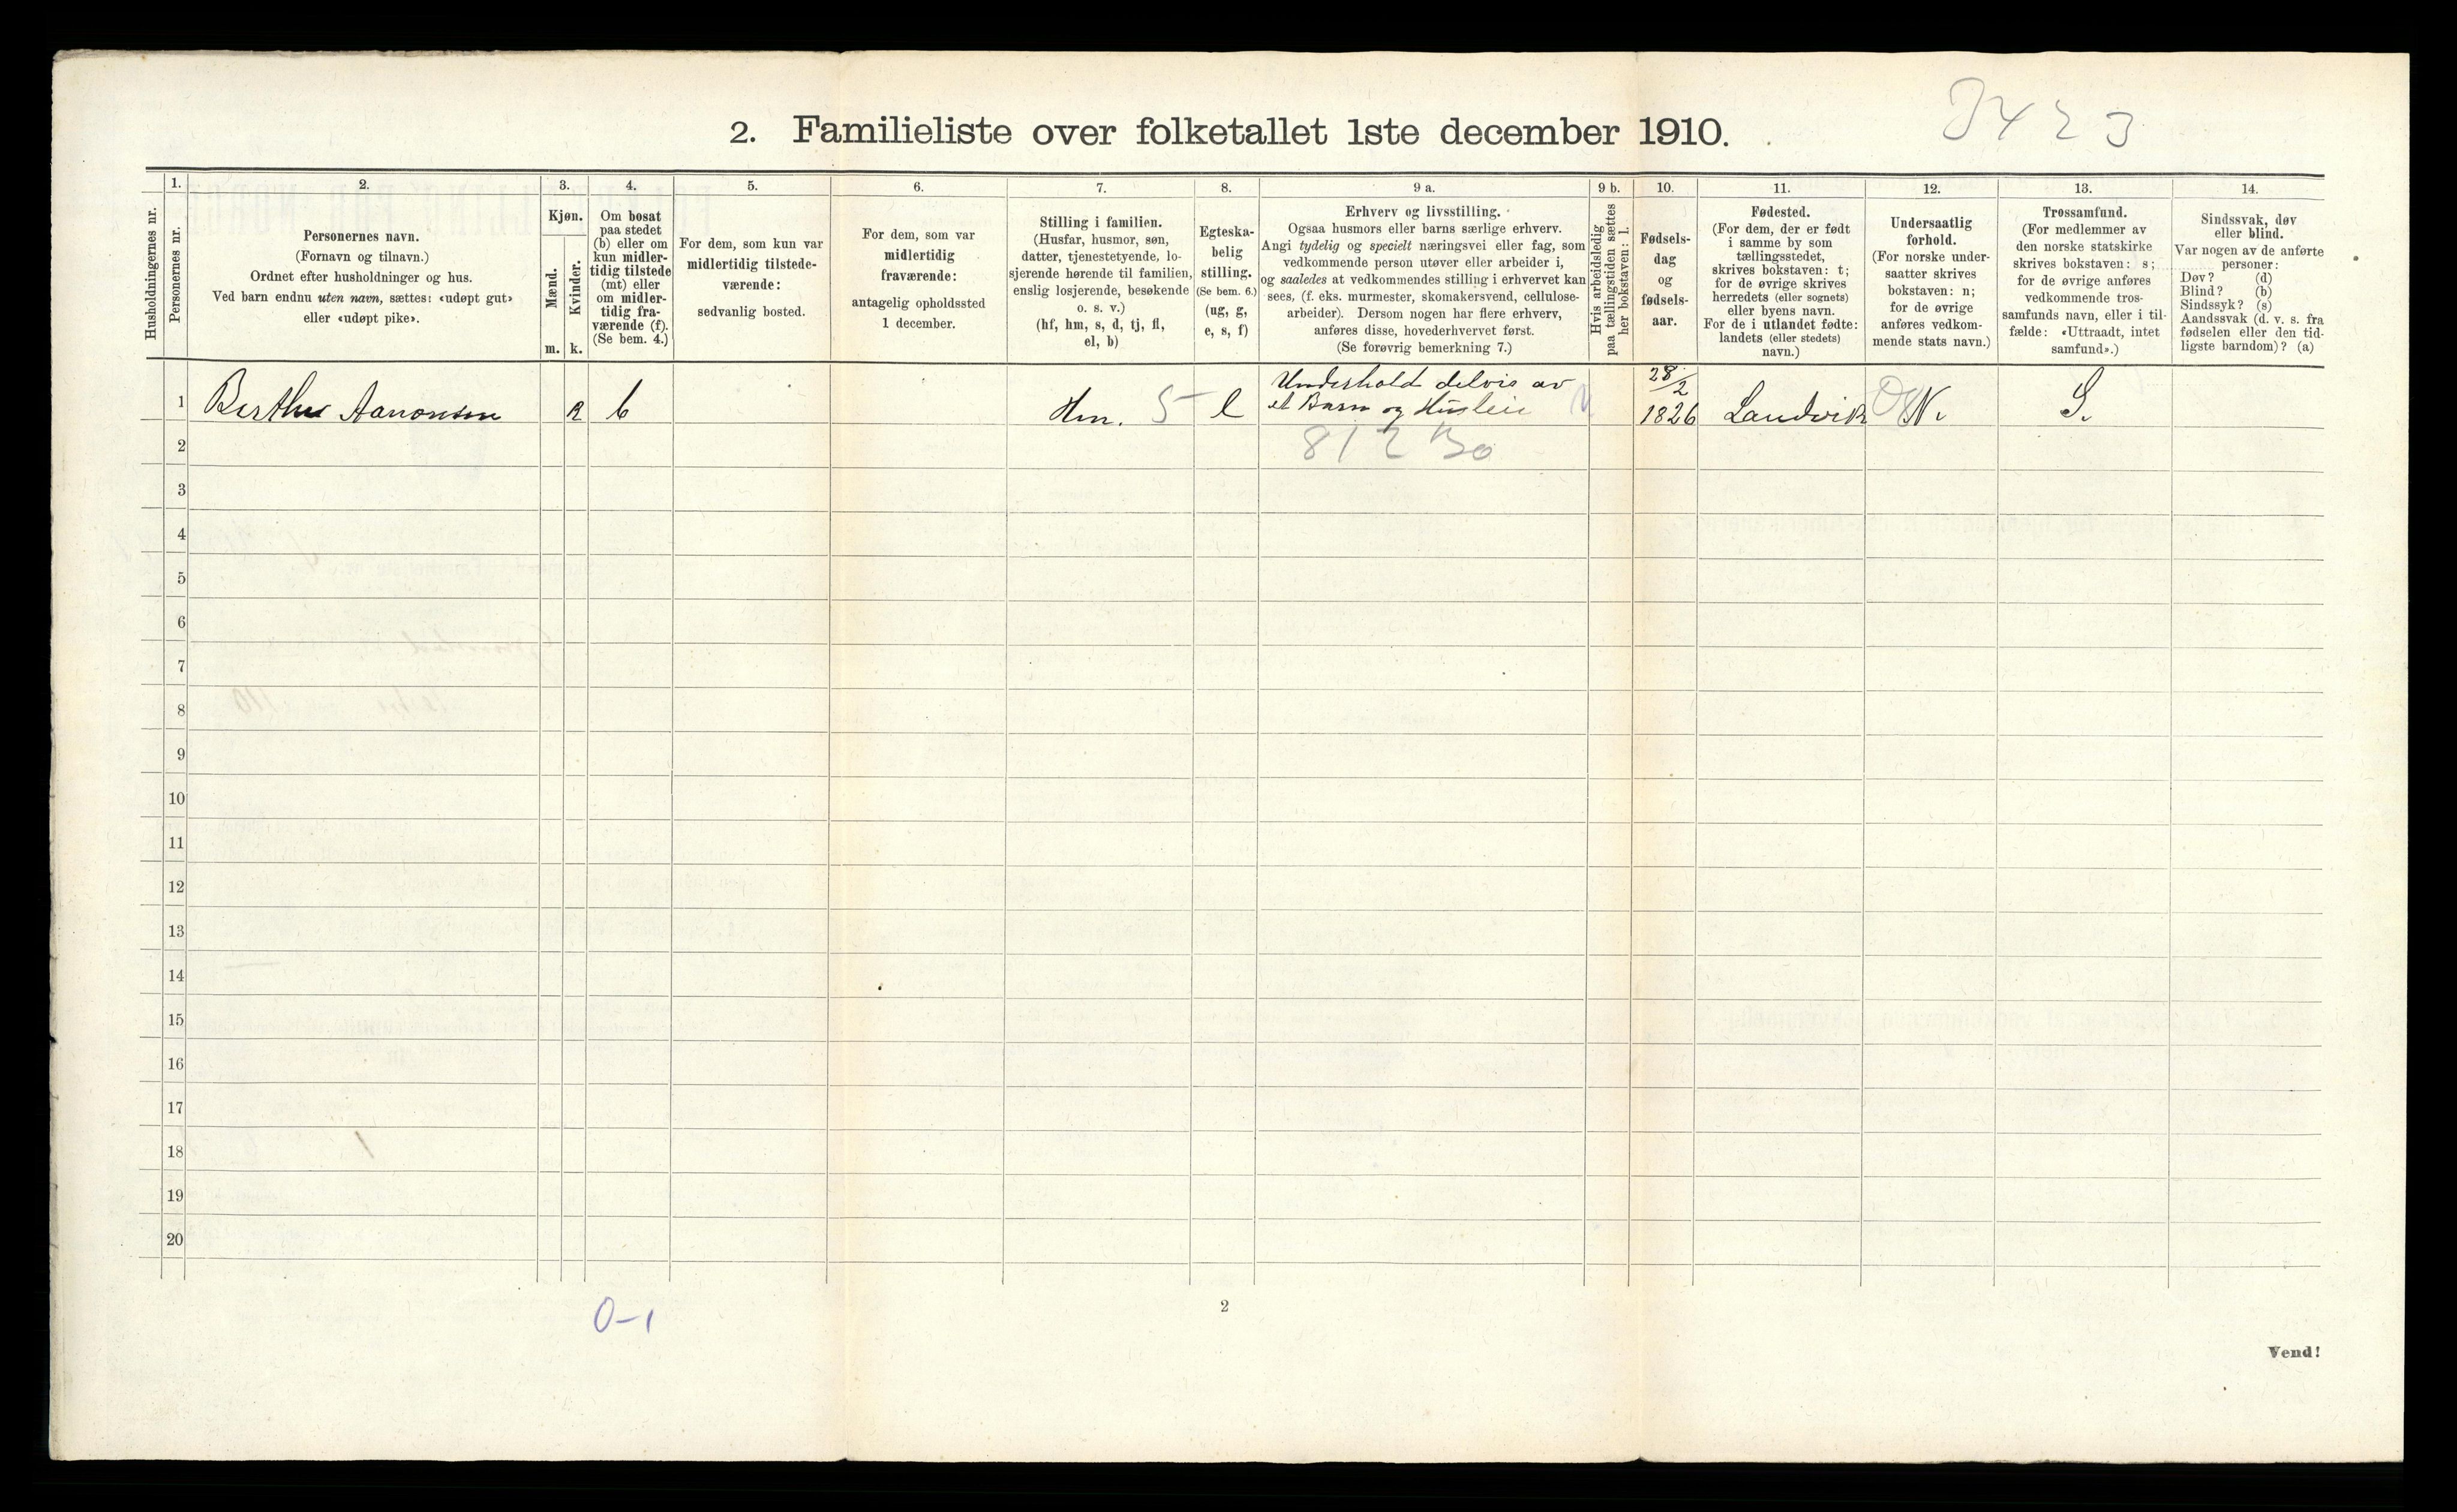 3423
2. Familieliste over folketallet 1ste december 1910.
Husholdningernes nr.
1.
Personernes nr.
2.
Personernes navn.
(Fornavn og tilnavn.)
Ordnet efter husholdninger og hus.
Ved barn endnu uten navn, sættes: «udøpt gut»
eller «udøpt pike».
3.
Kjøn.
Mænd.
m.
Kvinder.
k.
4.
Om bosat
paa stedet
(b) eller om
kun midler-
tidig tilstede
(mt) eller
om midler-
tidig fra-
værende (f).
(Se bem. 4.)
5.
For dem, som kun var
midlertidig tilstede-
værende:
sedvanlig bosted.
6.
For dem, som var
midlertidig
fraværende:
antagelig opholdssted
1 december.
7.
Stilling i familien.
(Husfar, husmor, søn,
datter, tjenestetyende, lo-
sjerende hørende til familien,
enslig losjerende, besøkende
o. s. v.)
(hf, hm, s, d, tj, fl,
el, b)
8.
Egteska-
belig
stilling.
(Se bem. 6.)
(ug, g,
e, s, f)
9 a.
Erhverv og livsstilling.
Ogsaa husmors eller barns særlige erhverv.
Angi tydelig og specielt næringsvei eller fag, som
vedkommende person utøver eller arbeider i,
og saaledes at vedkommendes stilling i erhvervet kan
sees, (f. eks. murmester, skomakersvend, cellulose-
arbeider). Dersom nogen har flere erhverv,
anføres disse, hovederhvervet først.
(Se forøvrig bemerkning 7.)
9 b.
Hvis arbeidsledig
paa tællingstiden sættes
her bokstaven: l.
10.
Fødsels-
dag
og
fødsels-
aar.
11.
Fødested.
(For dem, der er født
i samme by som
tællingsstedet,
skrives bokstaven: t;
for de øvrige skrives
herredets (eller sognets)
eller byens navn.
For de i utlandet fødte:
landets (eller stedets)
navn.)
12.
Undersaatlig
forhold.
(For norske under-
saatter skrives
bokstaven: n;
for de øvrige
anføres vedkom-
mende stats navn.)
13.
Trossamfund.
(For medlemmer av
den norske statskirke
skrives bokstaven: s;
for de øvrige anføres
vedkommende tros-
samfunds navn, eller i til-
fælde: «Uttraadt, intet
samfund».)
14.
Sindssvak, døv
eller blind.
Var nogen av de anførte
personer:
Døv? (d)
Blind? (b)
Sindssyk? (s)
Aandssvak (d. v. s. fra
fødselen eller den tid-
ligste barndom)? (a)
1 Berthe Aanonsen k b Hm. 5 e Underhold delvis av
et Barn og Husleie
28/2
1826 Landvik N. S.
812 Bo
2
3
4
5
6
7
8
9
10
11
12
13
14
15
16
17
18
19
20
0-1
2
Vend!